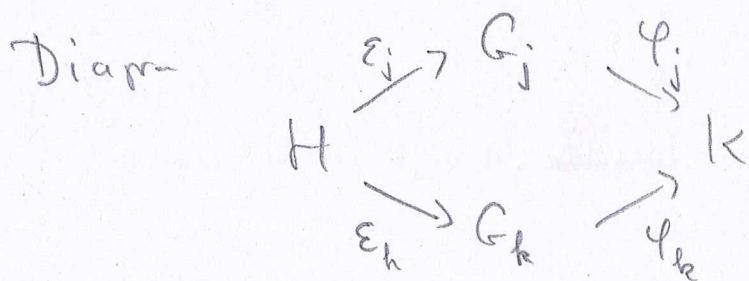 Diagram
ε_j G_j φ_j
H K
ε_k G_k φ_k